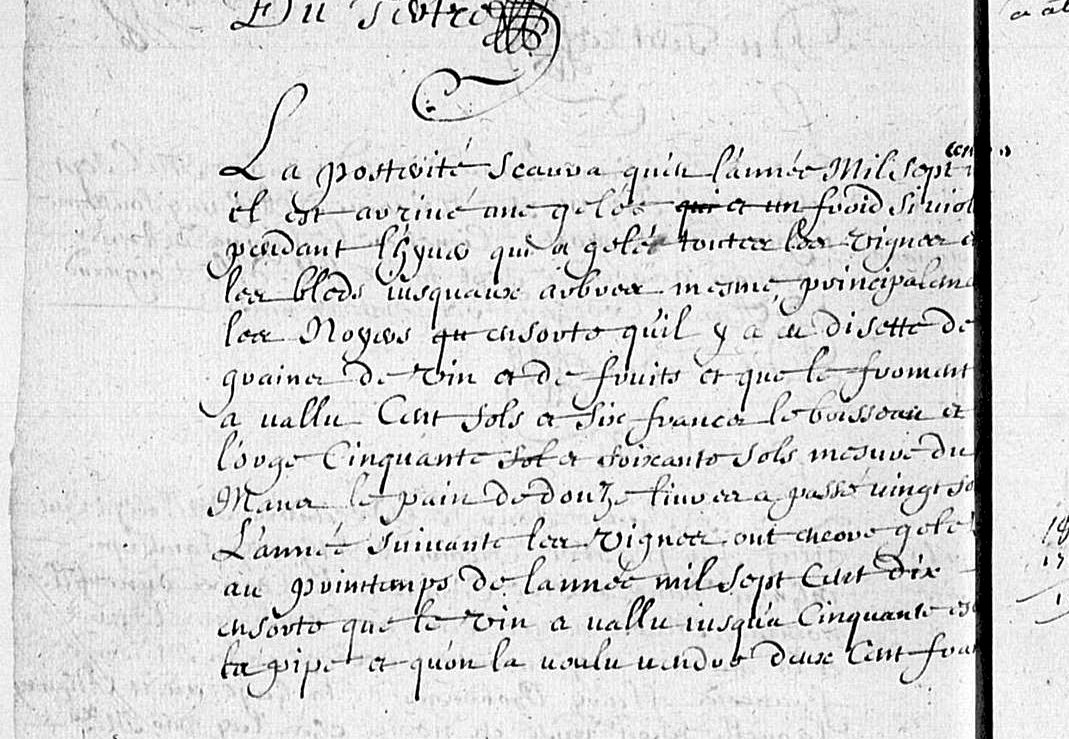 Du
La posterité scaura qu'en l'année Mil sept cent
il est arrivé une gelée qui et un froid si viol
pendant l'hyver qui a gelée touttes les vignes e
les bleds jusquaux arbres mesme, principaleme
les Noyers qu ensorte qu'il y a eu disette de
graines de vin et de fruits et que le froment
a vallu Cent sols et six frances le boisseau et
l'orge Cinquante sol et soixante sols mesure du
Mans le pain de douze livres a passé vingt so
L'année suivante les vignes ont encore gelé
au printemps de lannée mil sept Cent dix
ensorte que le vin a vallu jusqua Cinquante es
la pipe et qu'on la voulu vendre deux Cent fran